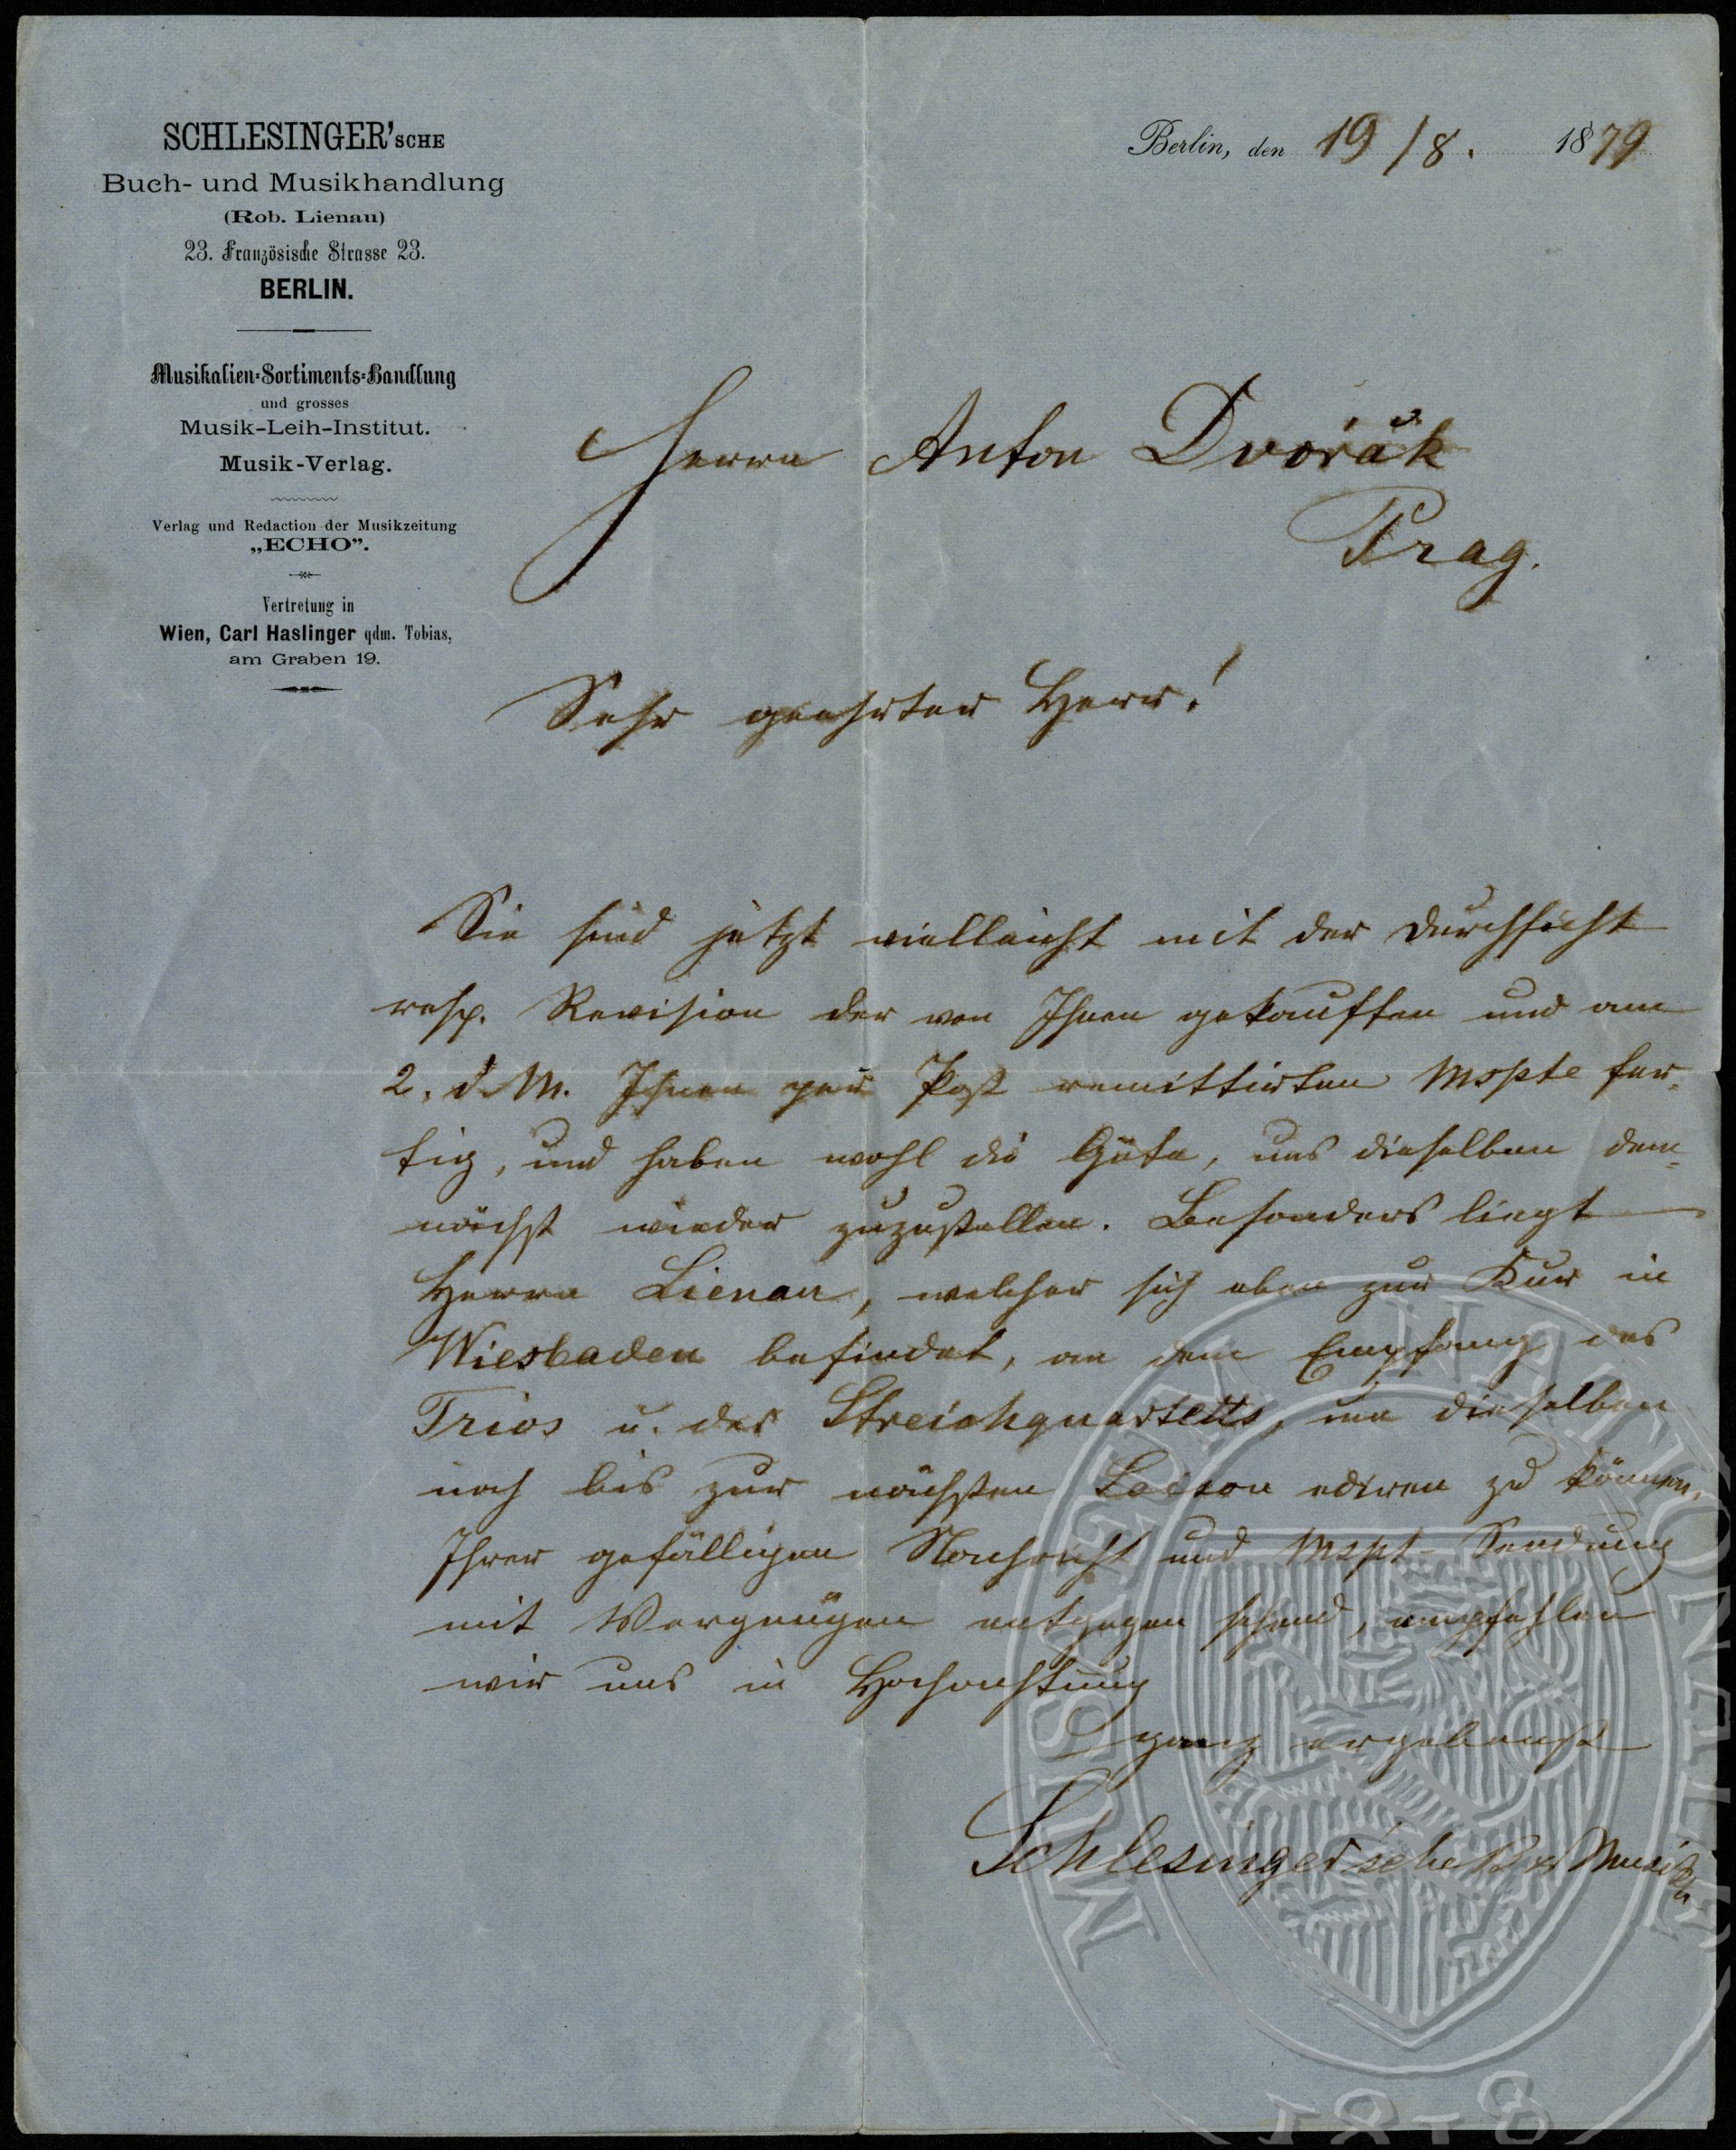 SCHLESINGER'SCHE
Buch- und Musikhandlung
(Rob. Lienau)
23. Französische Strasse 23.
BERLIN.
Musikalien-Sortiments-Handlung
und grosses
Musik-Leih-Institut.
Musik-Verlag.
Verlag und Redaction der Musikzeitung
„ECHO”.
Vertretung in
Wien, Carl Haslinger qdm. Tobias,
am Graben 19.
Berlin, den 19/8. 1879
Herrn Anton Dvořák
Prag.
Sehr geehrter Herr!
Sie sind jetzt vielleicht mit der Durchsicht
resp. Revision der von Ihnen gekauften und am
2. d. M. Ihnen per Post remittirten Mspte fer-
tig, und haben wohl die Güte, uns dieselben dem-
nächst wieder zuzustellen. Besonders liegt
Herrn Lienau, welcher sich eben zur Kur in
Wiesbaden befindet, an dem Empfang des
Trios u. des Streichquartetts, um dieselben
noch bis zur nächsten Saison ediren zu können.
Ihrer gefälligen Nachricht und Mspt-Sendung
mit Vergnügen entgegen sehend, empfehlen
wir uns in Hochachtung
ganz ergebenst
Schlesinger'sche B & Musikh
MUSEUM NATIONALE
1818